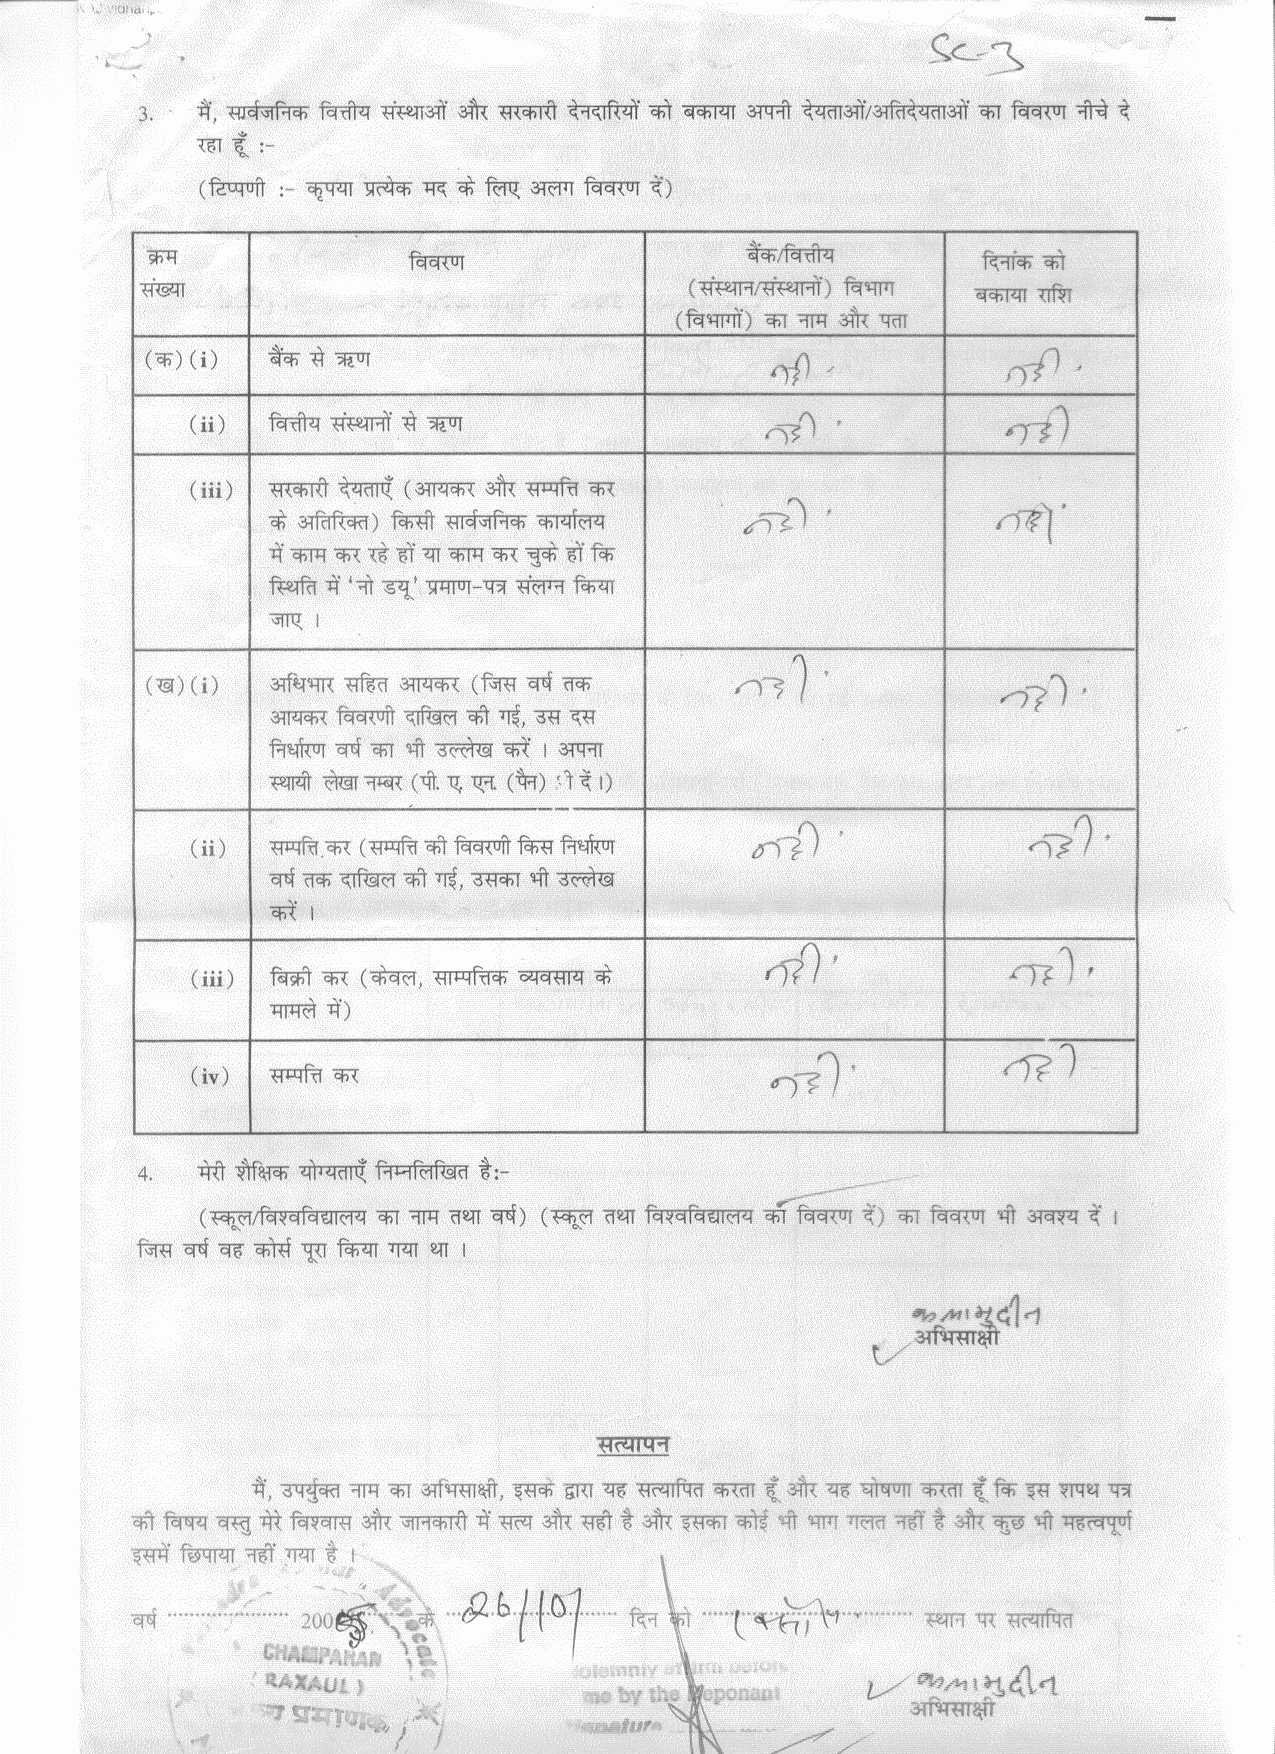 SC-3
3. मैं, सार्वजनिक वित्तीय संस्थाओं और सरकारी देनदारियों को बकाया अपनी देयताओं/अतिदेयताओं का विवरण नीचे दे
रहा हूँ :-
(टिप्पणी :- कृपया प्रत्येक मद के लिए अलग विवरण दें)
क्रम संख्या विवरण बैंक/वित्तीय (संस्थान/संस्थानों) विभाग (विभागों) का नाम और पता दिनांक को बकाया राशि
(क)(i) बैंक से ऋण नही नही
(ii) वित्तीय संस्थानों से ऋण नही नही
(iii) सरकारी देयताएँ (आयकर और सम्पत्ति कर नही नही
के अतिरिक्त) किसी सार्वजनिक कार्यालय
में काम कर रहे हों या काम कर चुके हों कि
स्थिति में 'नो डयू' प्रमाण-पत्र संलग्न किया
जाए ।
(ख)(i) अधिभार सहित आयकर (जिस वर्ष तक नही नही
आयकर विवरणी दाखिल की गई, उस दस
निर्धारण वर्ष का भी उल्लेख करें । अपना
स्थायी लेखा नम्बर (पी. ए. एन. (पैन) दें ।)
(ii) सम्पत्ति कर (सम्पत्ति की विवरणी किस निर्धारण नही नही
वर्ष तक दाखिल की गई, उसका भी उल्लेख
करें ।
(iii) बिक्री कर (केवल, साम्पत्तिक व्यवसाय के नही नही
मामले में)
(iv) सम्पत्ति कर नही नही
4. मेरी शैक्षिक योग्यताएँ निम्नलिखित है:-
(स्कूल/विश्वविद्यालय का नाम तथा वर्ष) (स्कूल तथा विश्वविद्यालय का विवरण दें) का विवरण भी अवश्य दें ।
जिस वर्ष वह कोर्स पूरा किया गया था ।
कलामुदीन
अभिसाक्षी
सत्यापन
मैं, उपर्युक्त नाम का अभिसाक्षी, इसके द्वारा यह सत्यापित करता हूँ और यह घोषणा करता हूँ कि इस शपथ पत्र
की विषय वस्तु मेरे विश्वास और जानकारी में सत्य और सही है और इसका कोई भी भाग गलत नहीं है और कुछ भी महत्वपूर्ण
इसमें छिपाया नहीं गया है ।
वर्ष 200 के 26/10 दिन को स्थान पर सत्यापित
Advocate
CHAMPARAN
(RAXAUL)
me by the Deponant
कलामुदीन
अभिसाक्षी